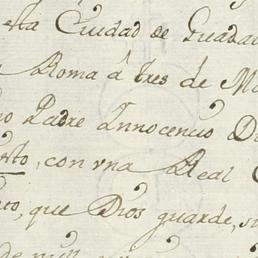 esta Ciudad de Guada
Roma á tres de M
Padre Innocencio D
con vna Real
que Dios guarde, s
de mill